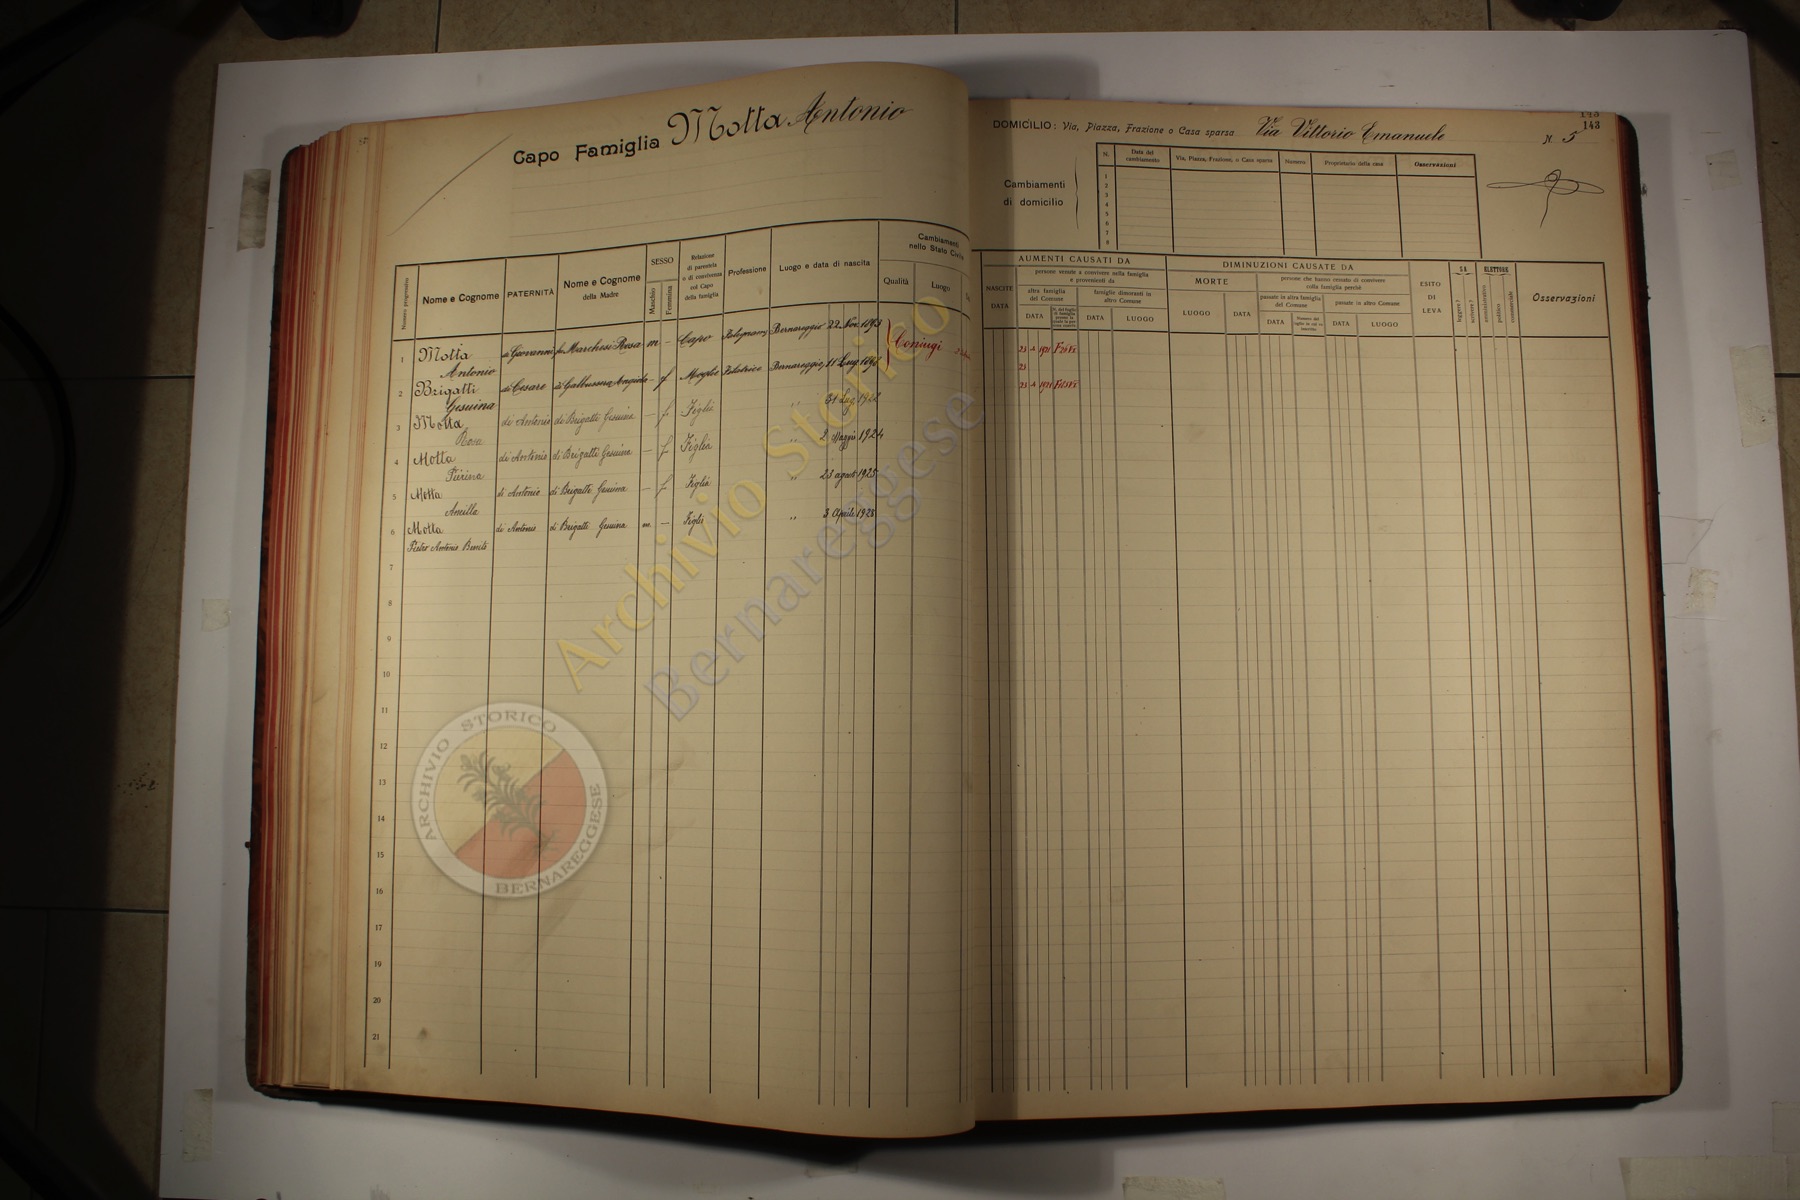 Capo Famiglia Motta Antonio
Numero progressivo
Nome e Cognome
PATERNITÀ
Nome e Cognome
della Madre
SESSO
Maschio
Femmina
Relazione
di parentela
o di convivenza
col Capo
della famiglia
Professione
Luogo e data di nascita
Cambiamenti
nello Stato Civile
Qualità
Luogo
1 Motta di Giovanni fu Marchesi Rosa m - Capo Bernareggio 22 Nov. 1893 Coniugi
Antonio
2 Brigatti di Cesare di Galbussera Angiola - f Moglie Bernareggio 11 Lug 1898
Gesuina
3 Motta di Antonio di Brigatti Gesuina - f Figlia " 31 Lug 1922
Rosa
4 Motta di Antonio di Brigatti Gesuina - f Figlia " 2 Maggio 1924
Pierina
5 Motta di Antonio di Brigatti Gesuina - f Figlia " 23 agosto 1925
Ancilla
6 Motta di Antonio di Brigatti Gesuina m. - Figli " 3 Aprile 1928
Antonio
7
8
9
10
11
12
13
14
15
16
17
18
19
20
21
143
143
DOMICILIO: Via, Piazza, Frazione o Casa sparsa Via Vittorio Emanuele N. 5
Cambiamenti
di domicilio
N.
Data del
cambiamento
Via, Piazza, Frazione, o Casa sparsa
Numero
Proprietario della casa
Osservazioni
1
2
3
4
5
6
7
8
AUMENTI CAUSATI DA
NASCITE
DATA
persone venute a convivere nella famiglia
e provenienti da
altra famiglia
del Comune
DATA
famiglie dimoranti in
altro Comune
DATA
LUOGO
DIMINUZIONI CAUSATE DA
MORTE
LUOGO
DATA
persone che hanno cessato di convivere
colla famiglia perchè
passate in altra famiglia
del Comune
DATA
passate in altro Comune
DATA
LUOGO
ESITO
DI
LEVA
SA
leggere?
scrivere?
ELETTORE
amministrativo
politico
commerciale
Osservazioni
1921
23
1921
Archivio Storico
Bernareggese
ARCHIVIO STORICO
BERNAREGGESE